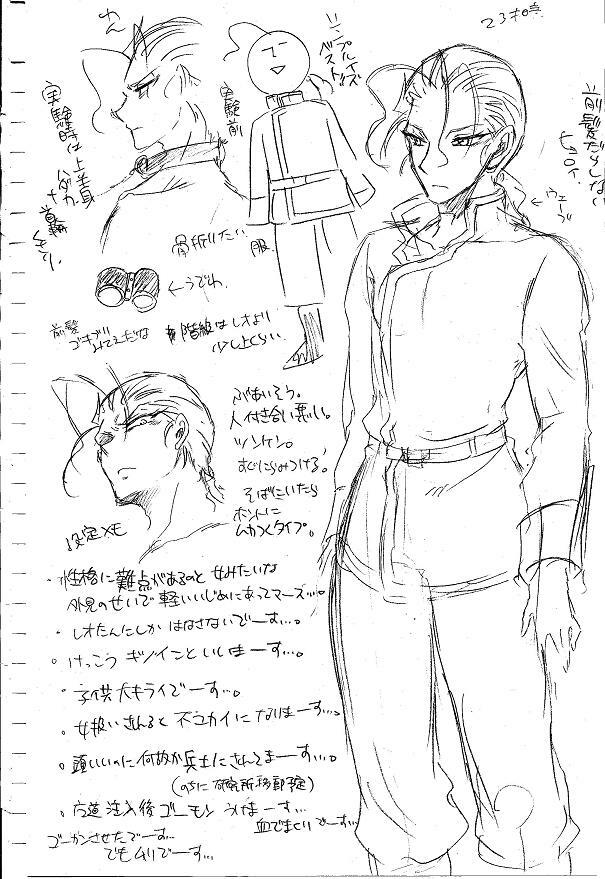 23才の時
わん
シンプルイズ
ベスト
前髪だらしない
ウェーブ
実験前
実験時は上半身
ハダカ
首輪
骨折りたい
服
←うでわ
前髪
ゴキブリ
みてえだな
階級はレオより
少し上くらい
ぶあいそう。
人付き合い悪い。
ツンケン。
すぐにらみつける。
そばにいたら
ホントに
ムカつくタイプ。
設定メモ
・性格に難点があるのと女みたいな
外見のせいで軽いいじめにあってマース…。
・レオたんにしかはなさないでーす…。
・けっこう
・子供大キライでーす…。
・女扱いされると不ユカイになりまーす…。
・頭いいのに何故か兵士にされてまーす…。
(のちに研究所移動予定)
・注入後ゴーモンうけまーす…
血でまくりでーす…
ゴーカンさせたでーす…
でもムリでーす…